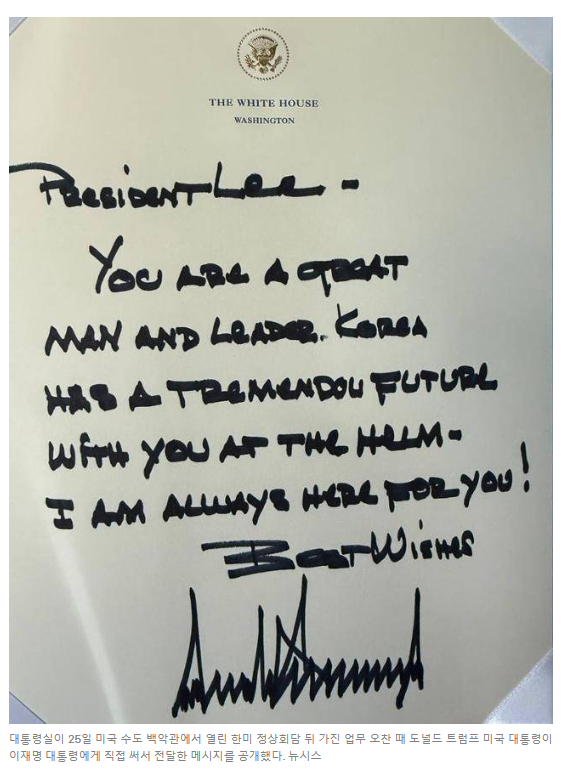 THE WHITE HOUSE
WASHINGTON
PRESIDENT LEE -
YOU ARE A GREAT
MAN AND LEADER. KOREA
HAS A TREMENDOU FUTURE
WITH YOU AT THE HELM-
I AM ALWAYS HERE FOR YOU!
BEST WISHES
대통령실이 25일 미국 수도 백악관에서 열린 한미 정상회담 뒤 가진 업무 오찬 때 도널드 트럼프 미국 대통령이
이재명 대통령에게 직접 써서 전달한 메시지를 공개했다. 뉴시스